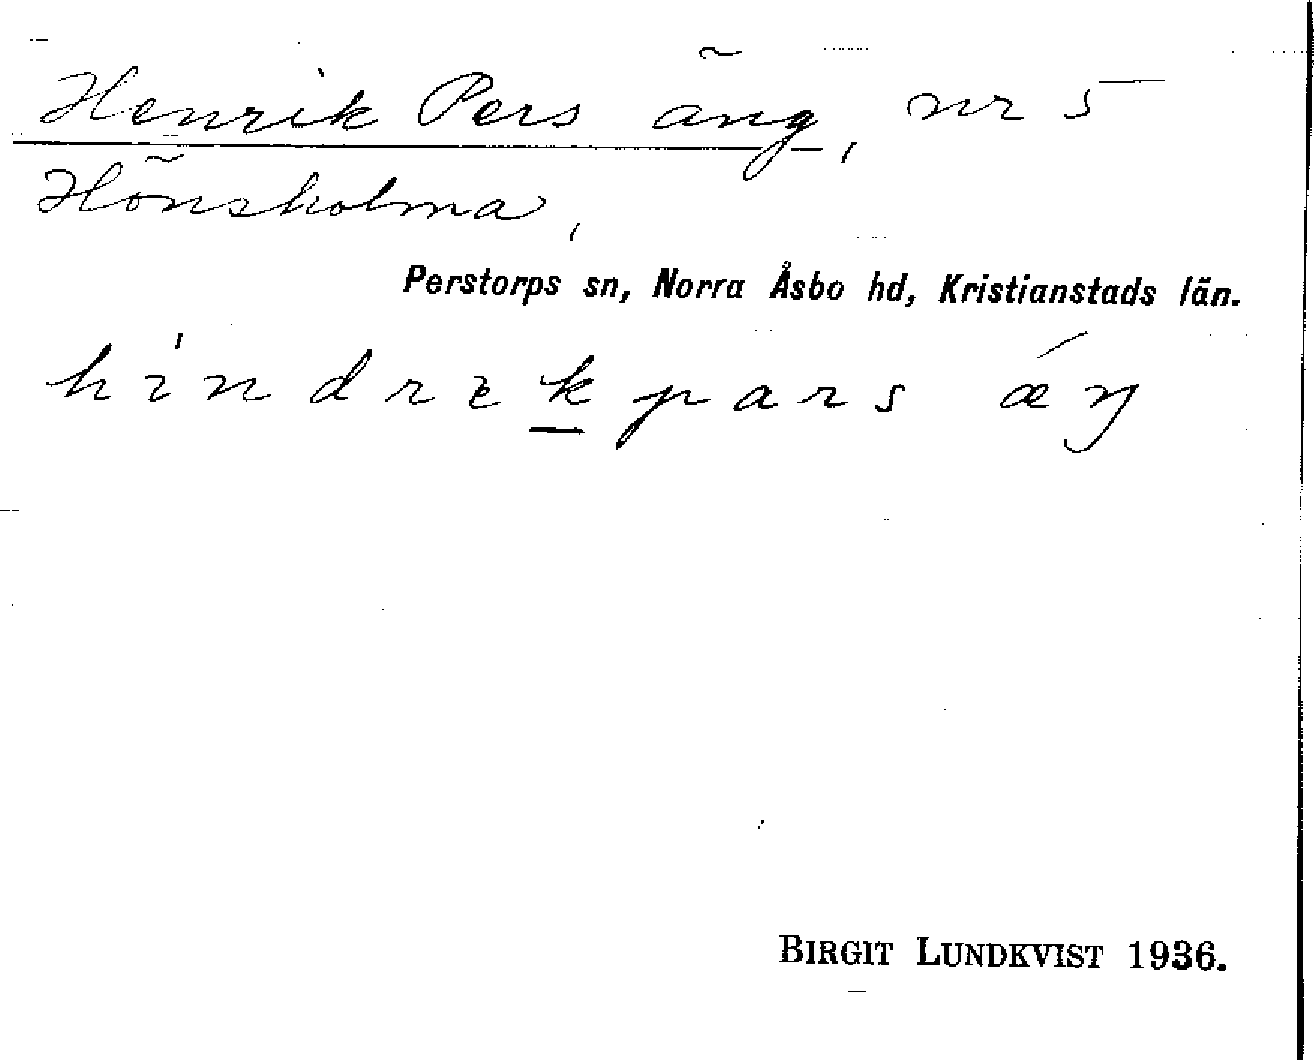 Henrik Pers äng, nr 5
Hönsholma,
Perstorps sn, Norra Åsbo hd, Kristianstads län.
hindrekpars ǽŋ
BIRGIT LUNDKVIST 1936.